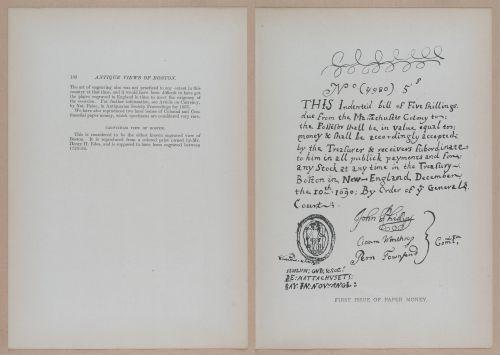 ANTIQUE VIEWS OF BOSTON.
The art of engraving also was not practised to any extent in this
country at that time, and it would have been difficult to have got
the plates engraved in England in time to meet the exigency of
the occasion. For further information, see Article on Currency,
by Nat. Paine, in Antiquarian Society Proceedings for
We have also reproduced two local issues of Colonial and Conti-
nental paper money, which specimens are considered very rare.
VIEW OF BOSTON.
This is considered to be the oldest known engraved view of
Boston. It is reproduced from a colored print owned by Mr.
Henry H. Edes, and is supposed to have been engraved between
No (4980) 5s
THIS Indented bill of Five Shillings
due from the Massachusets Colony to the
Possessor shall be in value equal to
money & shall be accordingly accepted
by the Treasurer & receivers subordinate
to him in all publick payments and for
any Stock at any time in the Treasury
Boston in New-England December
the 10th. 1690: By Order of ye General
Court
John
Adam Winthrop
Penn Townsend
Comtee
FIRST ISSUE OF PAPER MONEY.